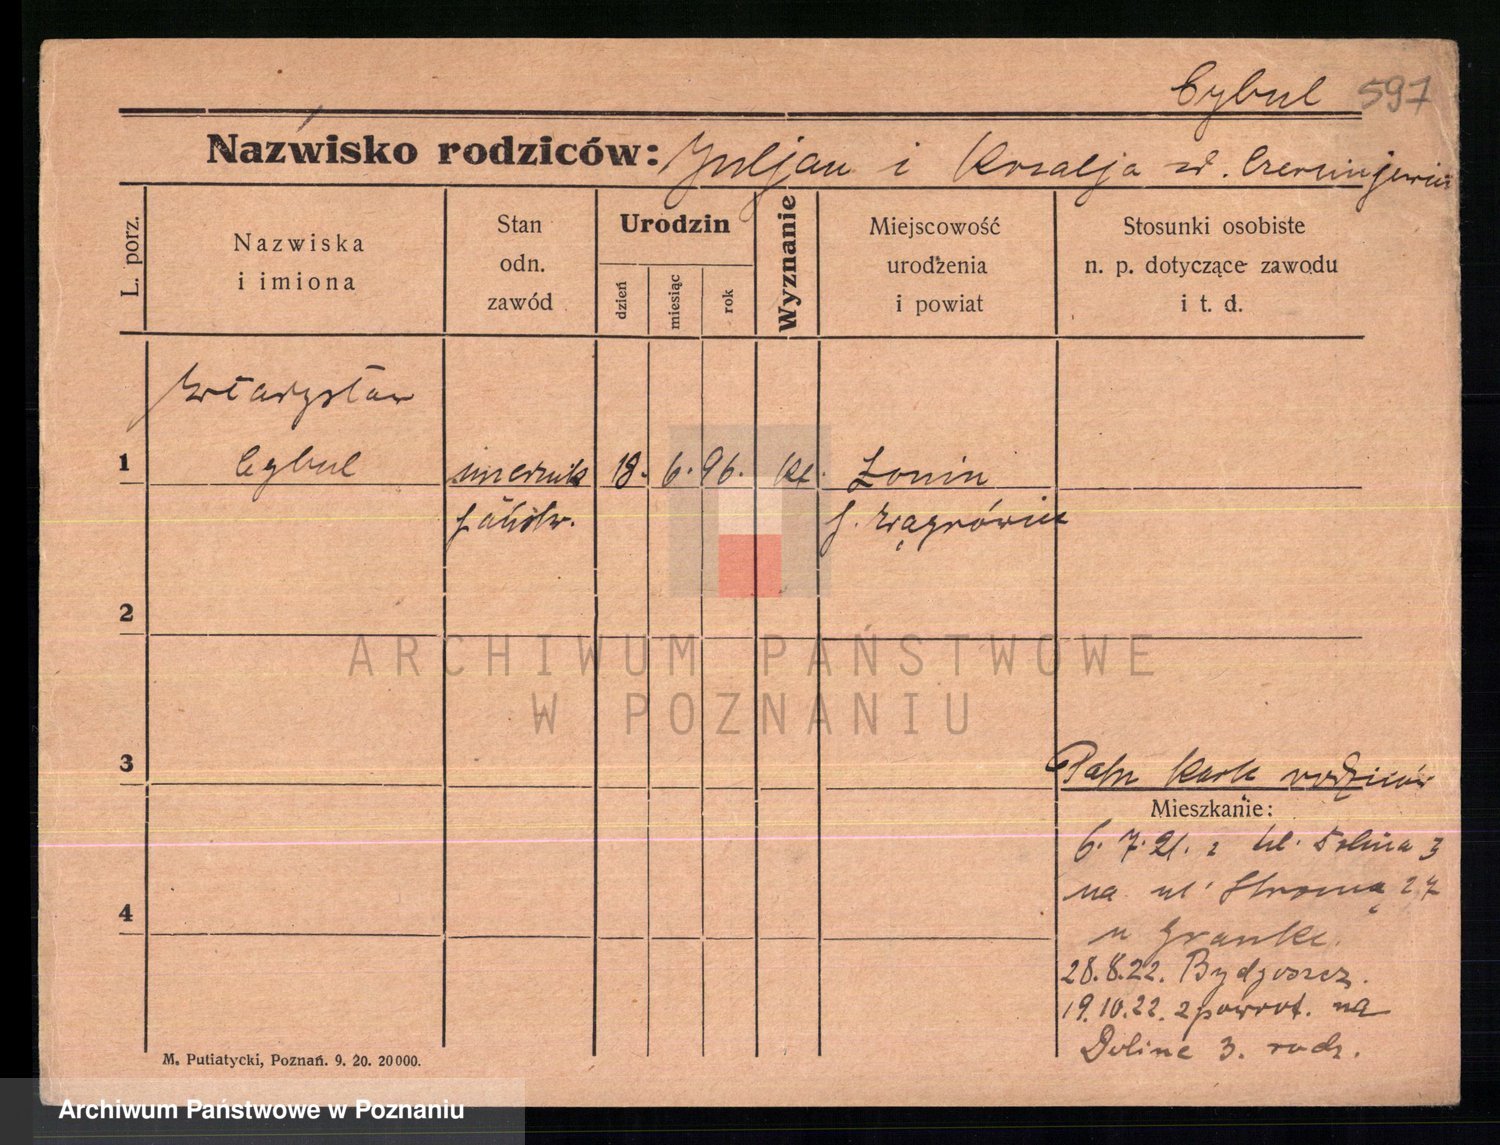 Cybul 597
Nazwisko rodziców: Juljan i Rozalja zd.
L. porz.
Nazwiska
i imiona
Stan
odn.
zawód
Urodzin
dzień
miesiąc
rok
Wyznanie
Miejscowość
urodzenia
i powiat
Stosunki osobiste
n. p. dotyczące zawodu
i t. d.
Władysław
1 Cybul miernik 18. 6. 96. kt.
państw. p. Wągrówiec
2
ARCHIWUM PAŃSTWOWE
W POZNANIU
3 karta rodziców
Mieszkanie:
6. 7. 21. z ul. Dolina 3
na ul. Stromą 27
4
u Franke.
28.8.22. Bydgoszcz.
19.10.22. zpowrot. na
Dolinę 3. rodz.
M. Putiatycki, Poznań. 9. 20. 20000.
Archiwum Państwowe w Poznaniu